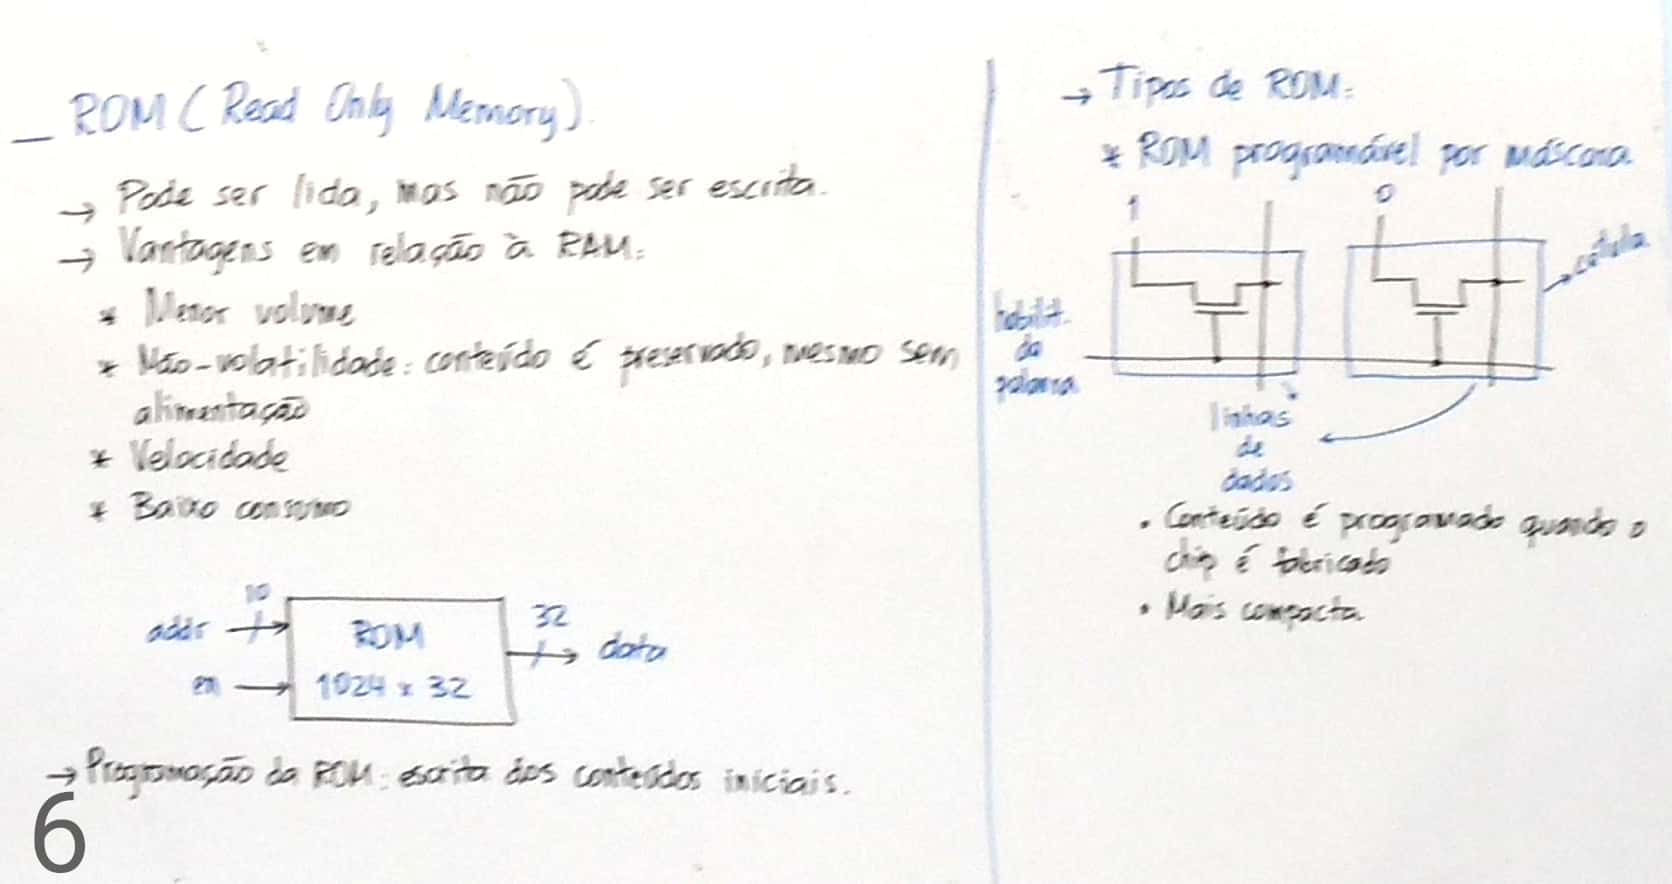 _ ROM (Read Only Memory).
→ Pode ser lida, mas não pode ser escrita.
→ Vantagens em relação à RAM:
* Menor volume
* Não-volatilidade: conteúdo é preservado, mesmo sem
alimentação
* Velocidade
* Baixo consumo
10
addr
en
ROM
1024 x 32
32
data
→ Programação da ROM: escrita dos conteúdos iniciais.
6
→ Tipos de ROM:
* ROM programável por máscara
1
0
célula
habilit.
da
palavra
linhas
de
dados
• Conteúdo é programado quando o
chip é fabricado
• Mais compacta